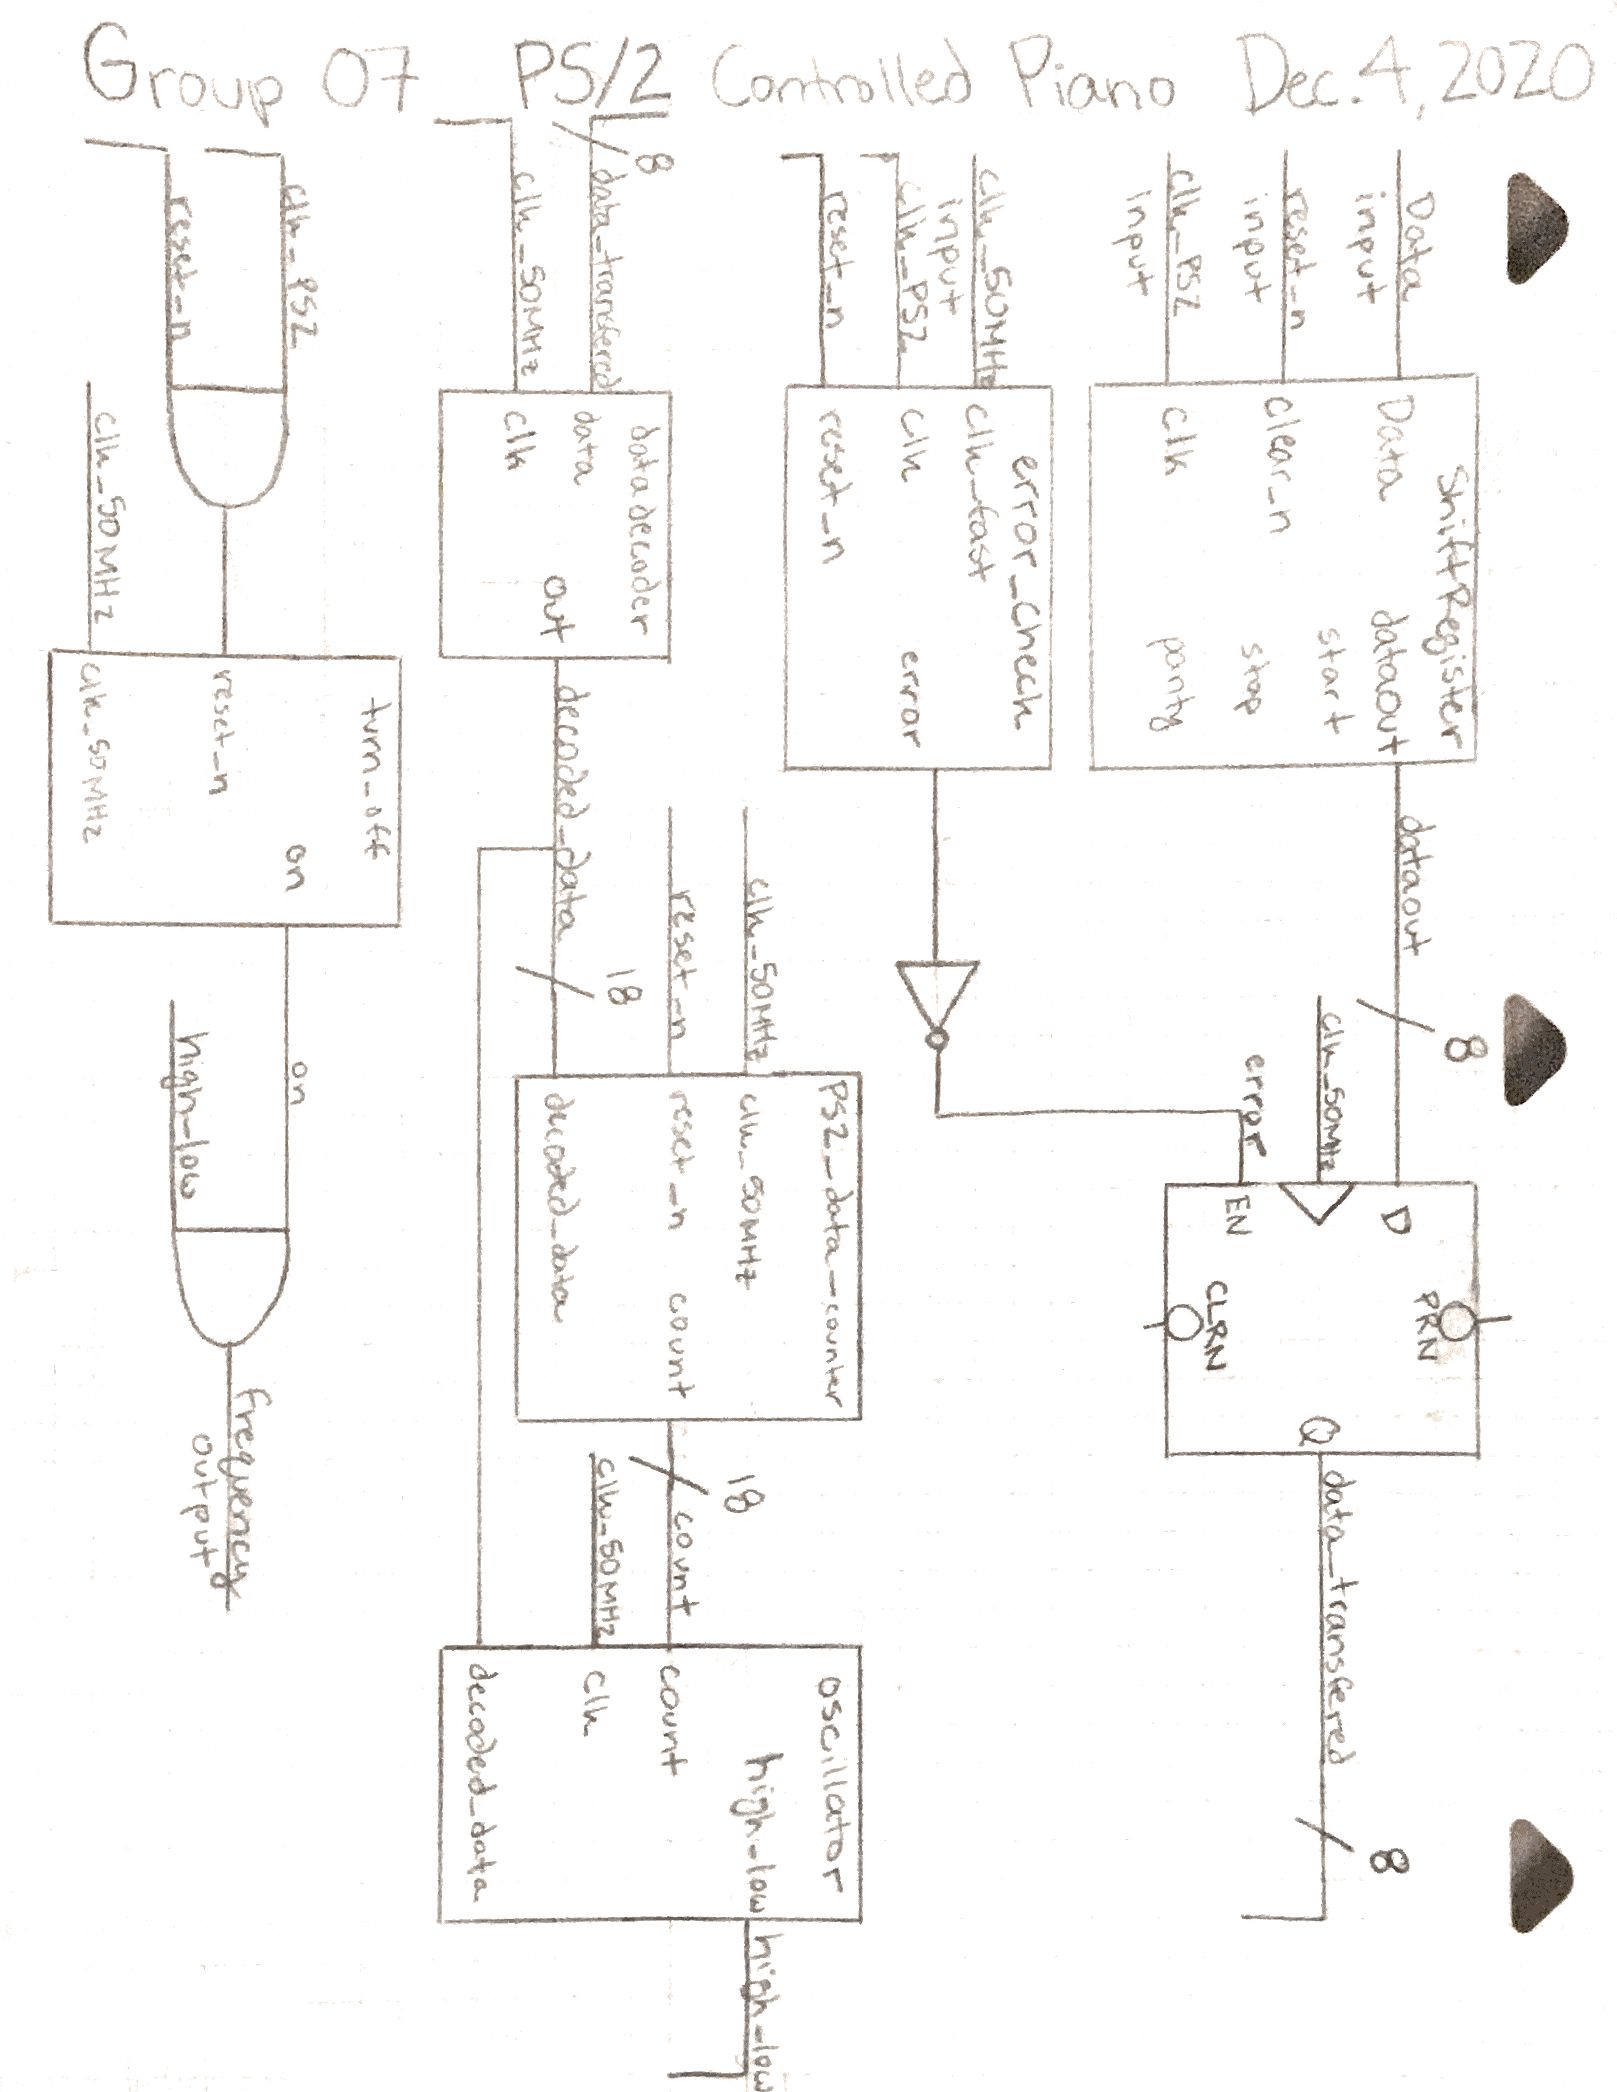 Group 07 PS/2 Controlled Piano Dec. 4, 2020
Data
input
reset_n
input
clk_PS2
input
ShiftRegister
Data
Clear_n
clk
dataout
start
stop
parity
dataout
8
clk_50MHz
error
D
EN
PRN
CLRN
Q
data_transfered
8
clk_50MHz
input
clk_PS2
reset_n
error_check
clk_fast
clk
reset_n
error
8
data_transfered
clk_50MHz
datadecoder
data
clk
out
decoded_data
18
clk_50MHz
reset_n
PS2_data_counter
clk_50MHz
reset_n
decoded_data
count
18
count
clk_50MHz
oscillator
count
clk
decoded_data
high_low
high_low
clk_PS2
reset_n
clk_50MHz
turn_off
reset_n
clk_50MHz
on
on
high_low
frequency
output